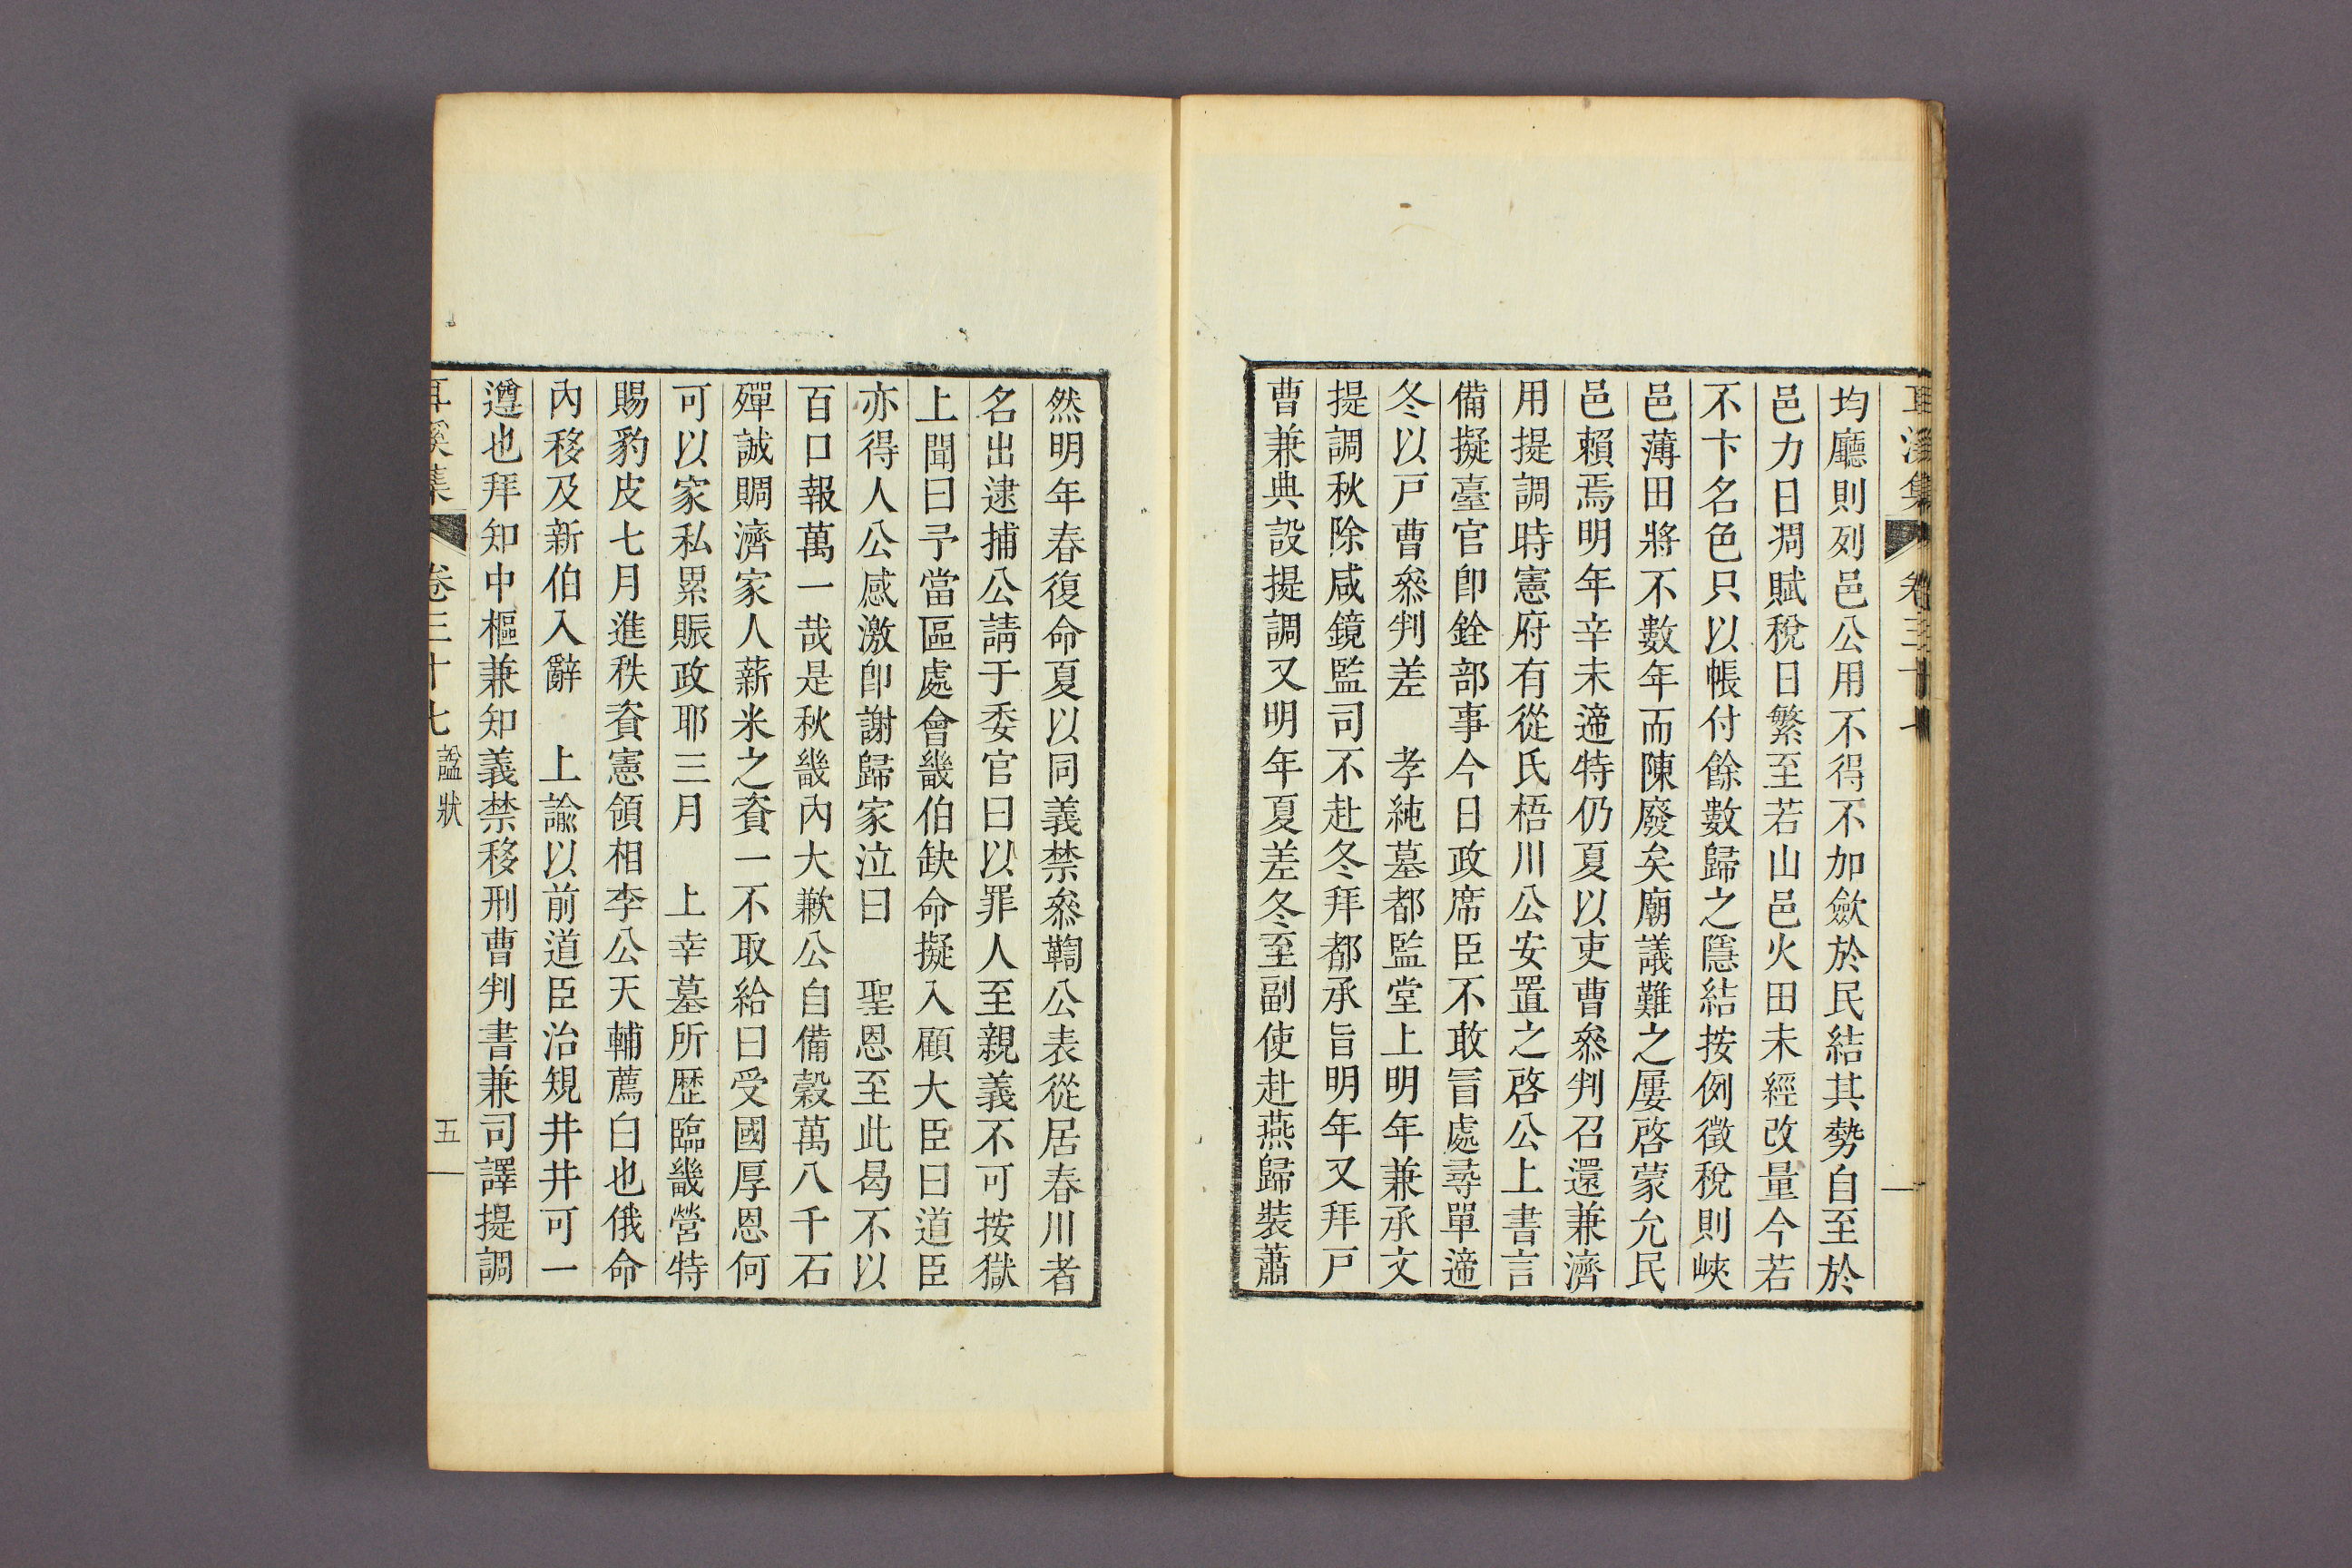 耳溪集 卷三十七
均廳則列邑公用不得不加斂於民結其勢自至於
邑力日凋賦稅日繁至若山邑火田未經改量今若
不卞名色只以帳付餘數歸之隱結按例徵稅則峽
邑薄田將不數年而陳廢矣廟議難之屢啓蒙允民
邑賴焉明年辛未遞特仍夏以吏曹叅判召還兼濟
用提調時憲府有從氏梧川公安置之啓公上書言
備擬臺官卽銓部事今日政席臣不敢冒處尋單遞
冬以戶曹叅判差 孝純墓都監堂上明年兼承文
提調秋除咸鏡監司不赴冬拜都承旨明年又拜戶
曹兼典設提調又明年夏差冬至副使赴燕歸裝蕭
然明年春復命夏以同義禁叅鞫公表從居春川者
名出逮捕公請于委官曰以罪人至親義不可按獄
上聞曰予當區處會畿伯缺命擬入顧大臣曰道臣
亦得人公感激卽謝歸家泣曰 聖恩至此曷不以
百口報萬一哉是秋畿內大歉公自備穀萬八千石
殫誠賙濟家人薪米之資一不取給曰受國厚恩何
可以家私累賑政耶三月 上幸墓所歷臨畿營特
賜豹皮七月進秩資憲領相李公天輔薦白也俄命
內移及新伯入辭 上諭以前道臣治規井井可一
遵也拜知中樞兼知義禁移刑曹判書兼司譯提調
耳溪集 卷三十七 諡狀 五